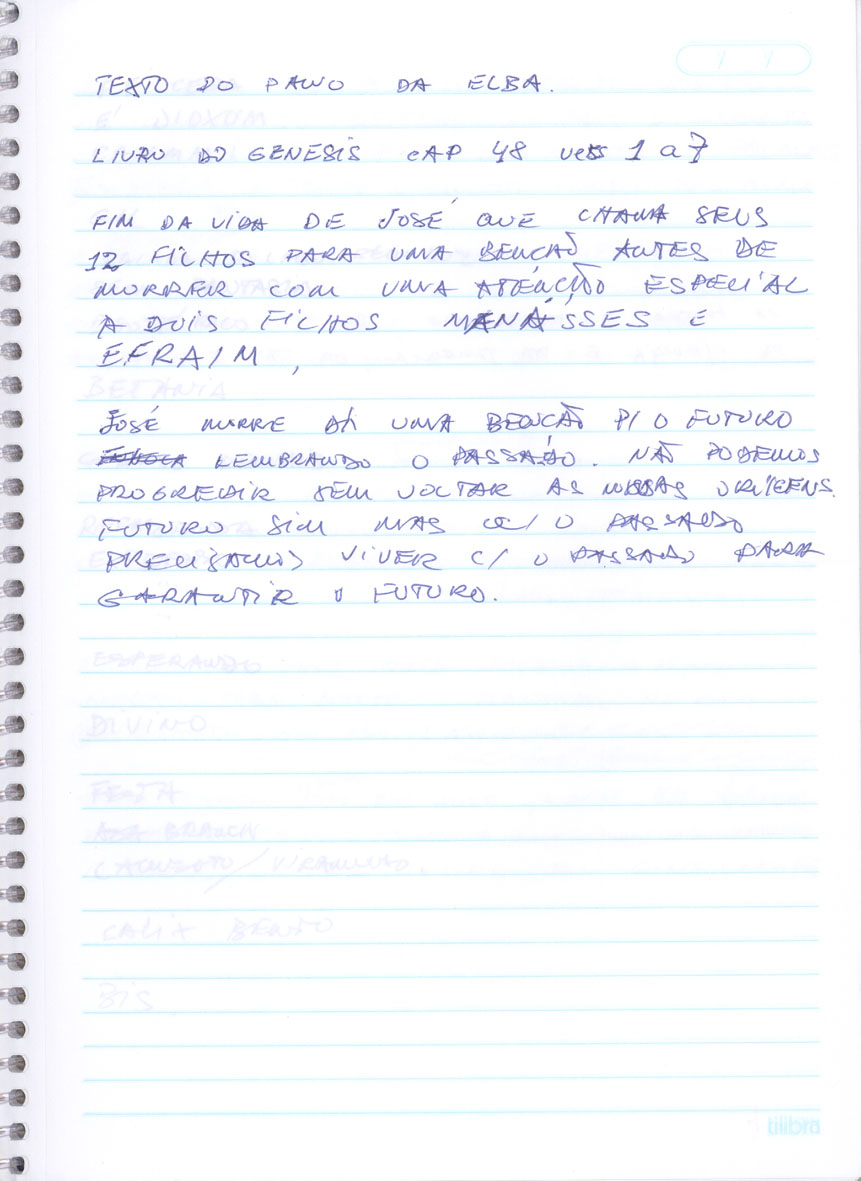 TEXTO DO PANO DA ELBA.
LIVRO DO GENESIS CAP 48 VERS 1 a 7
FIM DA VIDA DE JOSÉ QUE CHAMA SEUS
12 FILHOS PARA UMA BENCÃO ANTES DE
MORRER COM UMA ATENCÃO ESPECIAL
A DOIS FILHOS MANÁSSES E
EFRAIM,
JOSÉ MORRE DÁ UMA BENCÃO P/ O FUTURO
LEMBRANDO O PASSADO. NÃO PODEMOS
PROGREDIR SEM VOLTAR AS NOSSAS ORIGENS.
FUTURO SIM MAS C/ O PASSADO
PRECISAMOS VIVER C/ O PASSADO PARA
GARANTIR O FUTURO.
BETANIA
ESPERANDO
DIVINO
FESTA
CALIX BENTO
BIS
tilibra